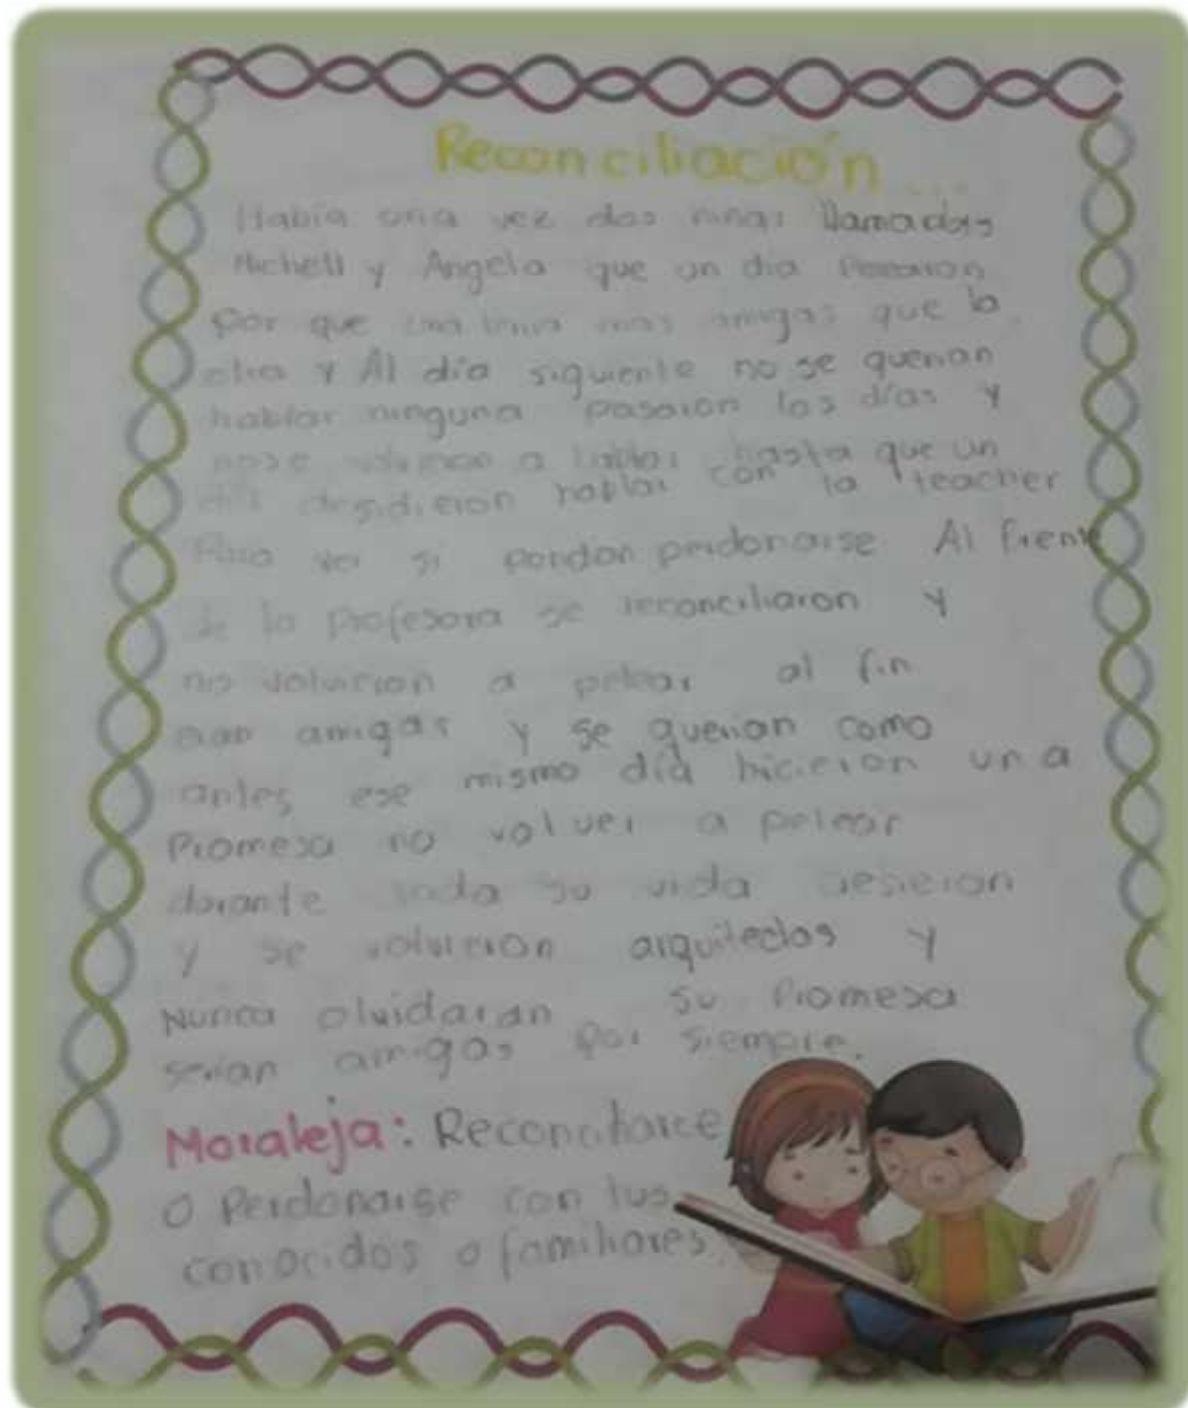 Reconciliación...
Había una vez dos niñas llamadas
Michell y Angela que un día
por que una mas amigas que la
otra y Al día siguiente no se querian
hablar ninguna pasaron los días y
nose a hablar hasta que un
día desidieron hablar con la teacher
Para ver si pordon perdonarse Al frente
de la profesora se reconciliaron y
no volvieron a pelear al fin
eran amigas y se querian como
antes ese mismo día hicieron una
Promesa no volver a pelear
durante toda su vida
y se volvieron arquitectos y
Nunca olvidaran su Promesa
serian amigas por siempre.
Moraleja: Reconciliarce
o Perdonarse con tus
conocidos o familiares